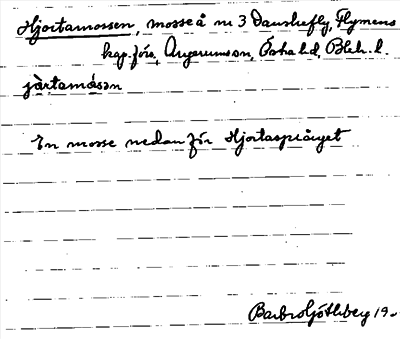 Hjortamossen, mosse å nr 3 Danskefly, Flymens
kap.förs, Augerumssn, Östra hd, Blek. l.
jàrtamåsən
En mosse nedanför Hjortasprånget
Barbro Ljöthberg 19